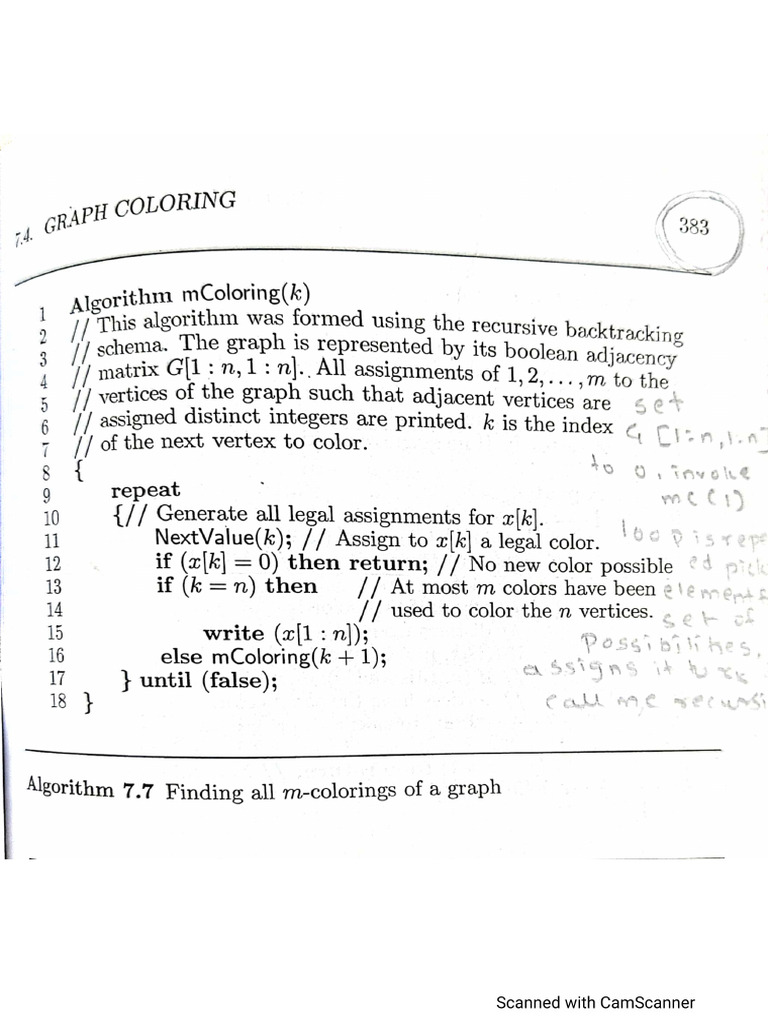 7.4. GRAPH COLORING
383
1 Algorithm mColoring(k)
2 // This algorithm was formed using the recursive backtracking
3 // schema. The graph is represented by its boolean adjacency
4 // matrix G[1 : n, 1 : n]. All assignments of 1, 2, . . . , m to the
5 // vertices of the graph such that adjacent vertices are
set
6 // assigned distinct integers are printed. k is the index
G [1:n, 1:n]
7 // of the next vertex to color.
8 {
to 0, invoke
9 repeat
mc(1)
10 {// Generate all legal assignments for x[k].
11 NextValue(k); // Assign to x[k] a legal color.
loop is repe
12 if (x[k] = 0) then return; // No new color possible
ed pick
13 if (k = n) then // At most m colors have been
elements
14 // used to color the n vertices.
set of
15 write (x[1 : n]);
possibilites,
16 else mColoring(k + 1);
assigns it to
17 } until (false);
call mc recursi
18 }
Algorithm 7.7 Finding all m-colorings of a graph
Scanned with CamScanner